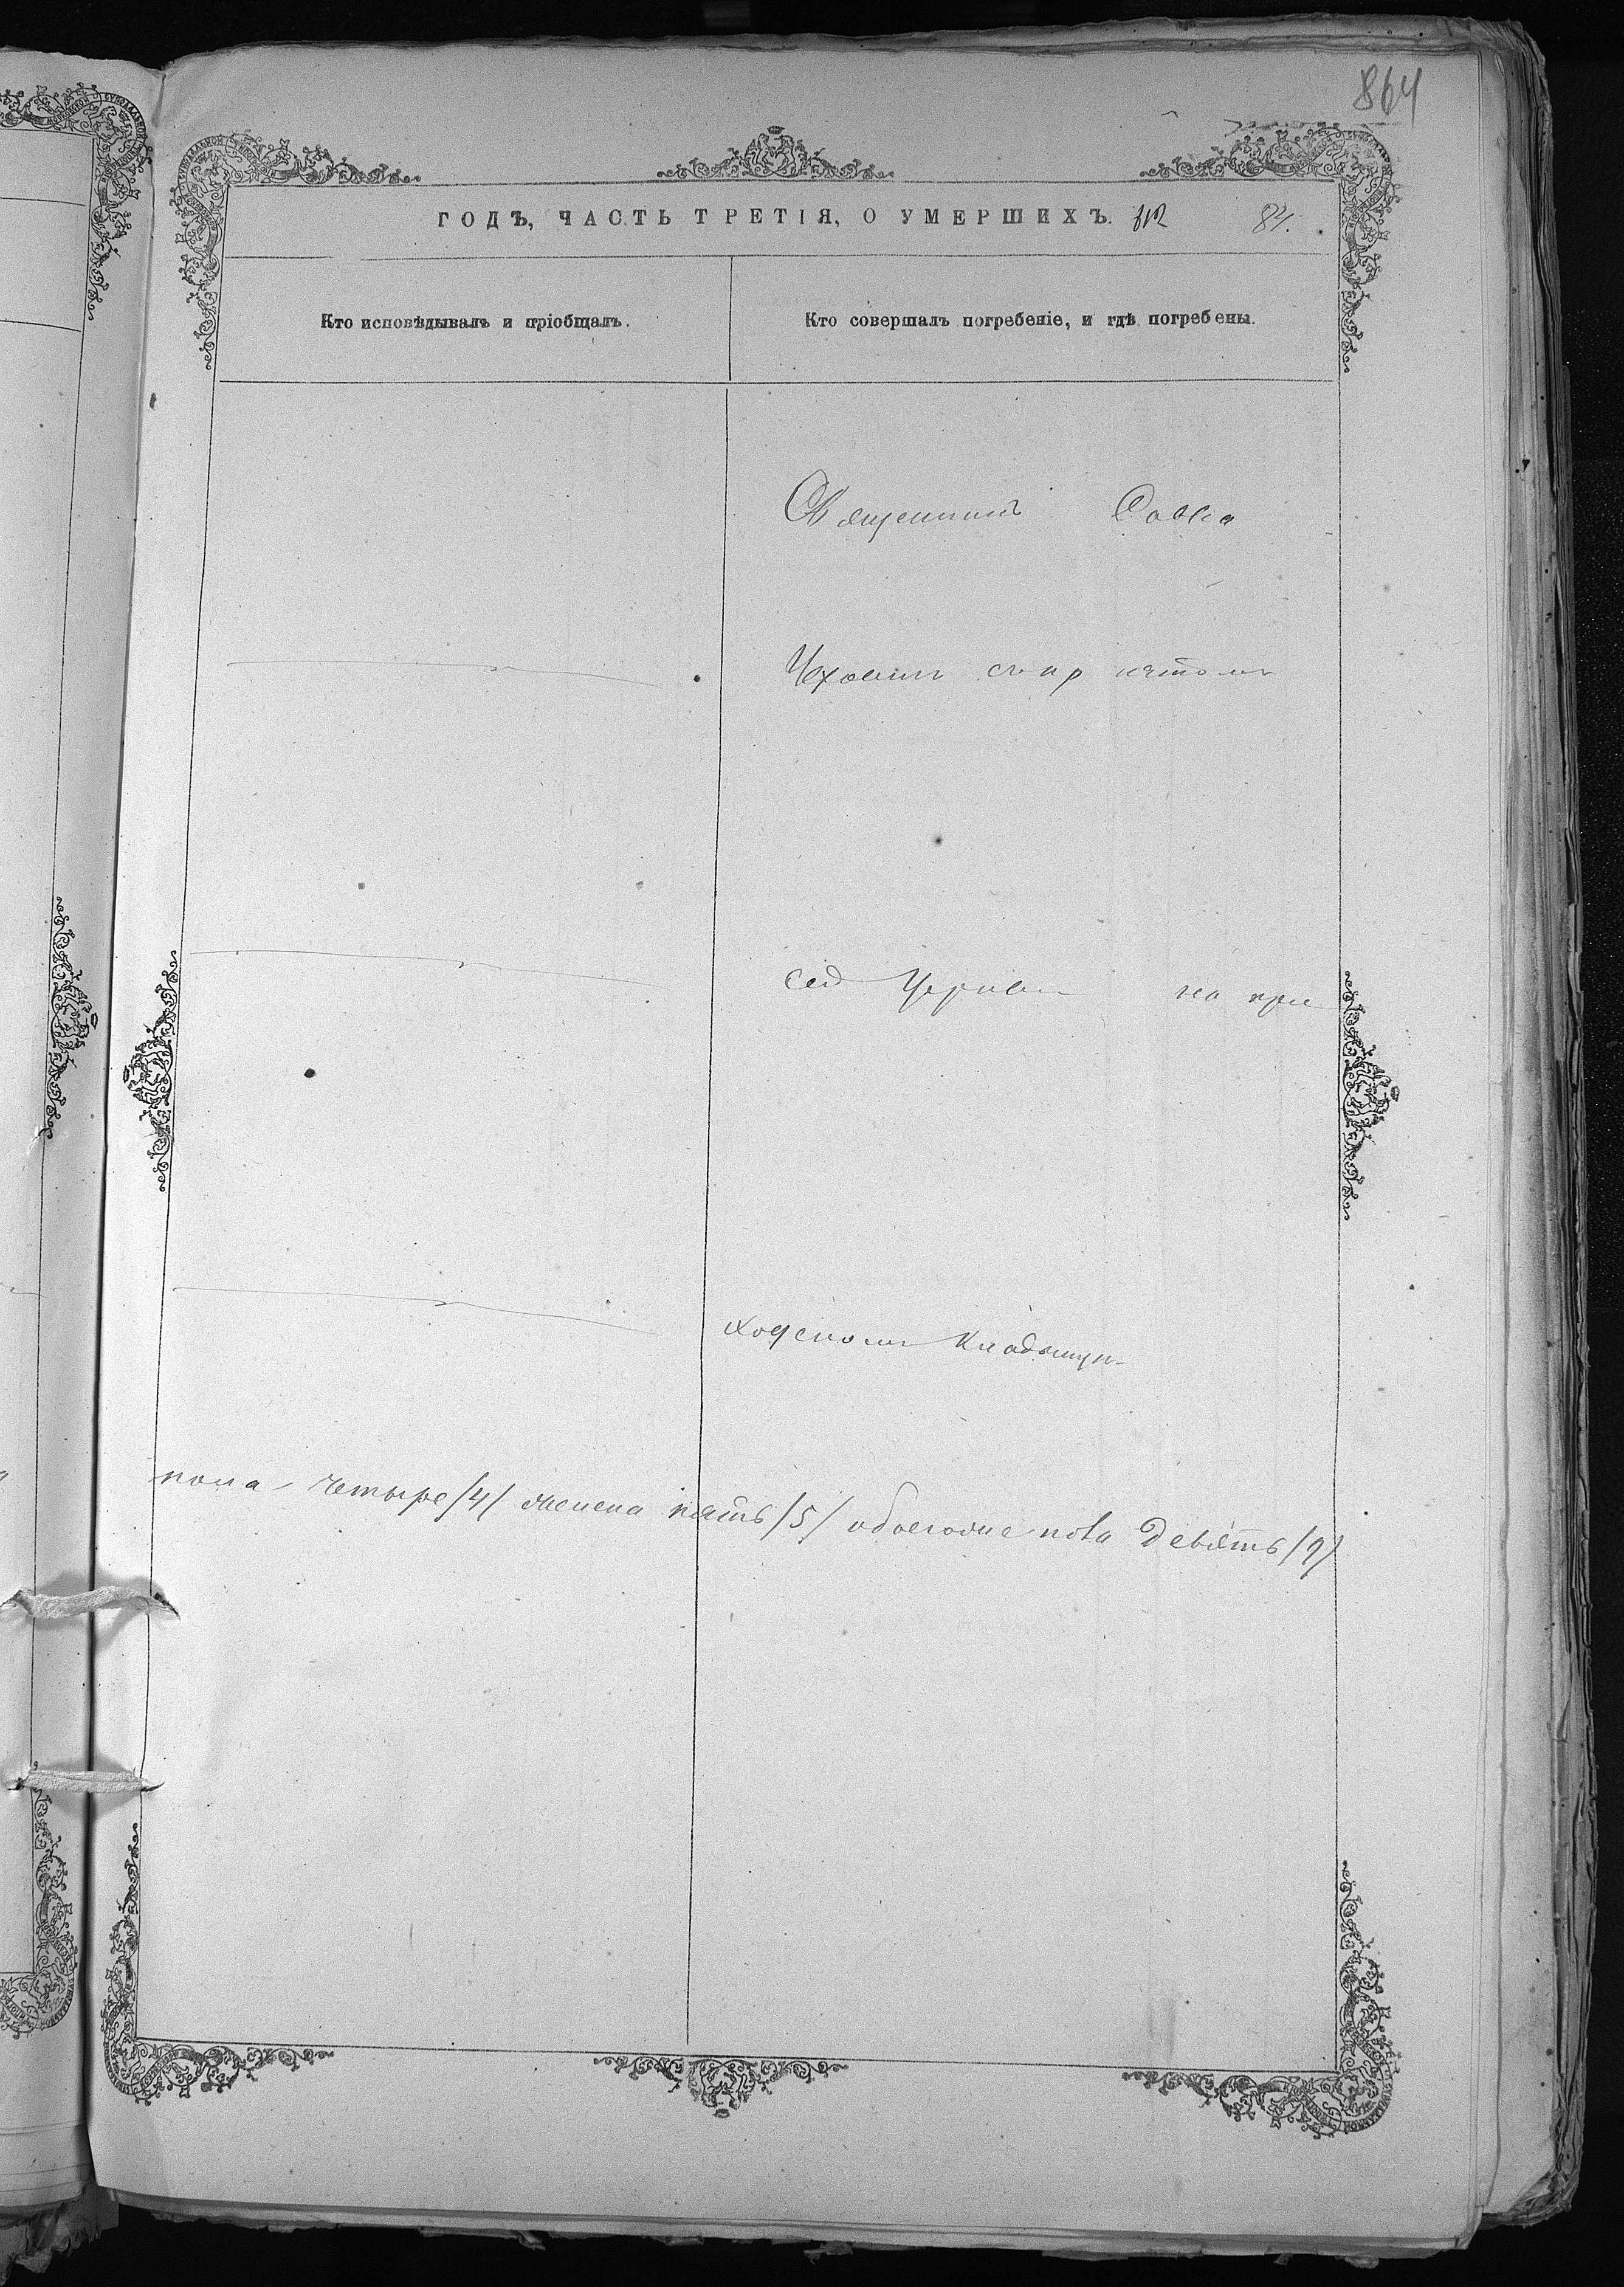 864
ГОДЪ, ЧАСТЬ ТРЕТІЯ, О УМЕРШИХЪ. 84.
Кто исповѣдывалъ и пріобщалъ.
Кто совершалъ погребеніе, и гдѣ погребены.
Священникъ Савва
съ пр
Церкви на при
ходскомъ кладбищѣ
пола четыре /4/ женска пять /5/ обоего пола девять /9/